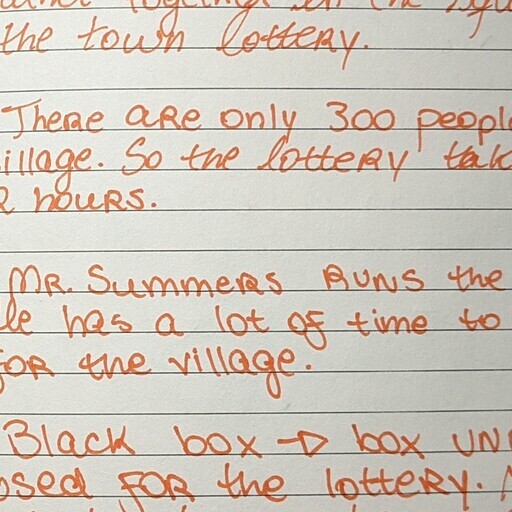 the town lottery.
There are only 300 people
village. So the lottery
2 hours.
Mr. Summers runs the
has a lot of time to
for the village.
Black box → box
for the lottery.